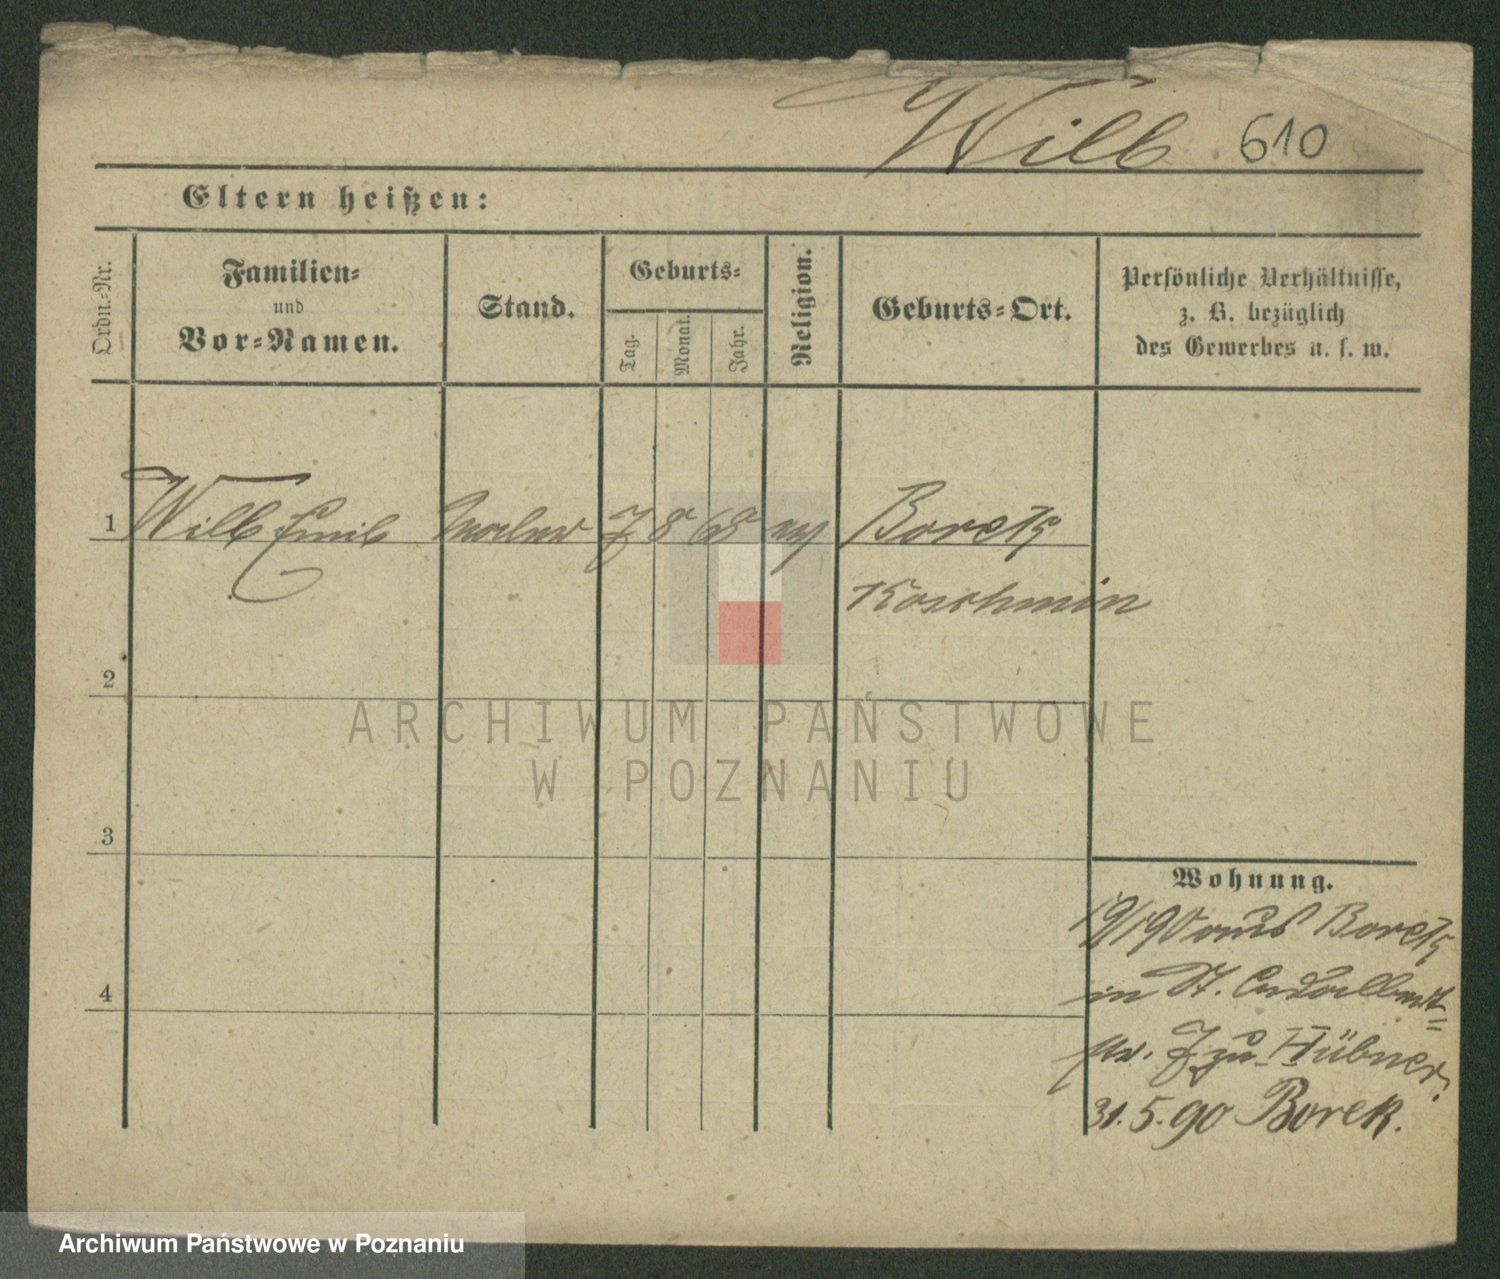 Wilb 610
Eltern heißen:
Ordn.-Nr.
Familien-
und
Vor-Namen.
Stand.
Geburts-
Tag.
Monat.
Jahr.
Religion.
Geburts-Ort.
Persönliche Verhältnisse,
z. B. bezüglich
des Gewerbes u. s. w.
1 Wilb Emil Maler 7 8 68 Boretz
Koschmin
2
3
4
Wohnung.
aus Boretz
in St.
7 zu Hübner.
31.5.90 Borek.
ARCHIWUM PAŃSTWOWE
W POZNANIU
Archiwum Państwowe w Poznaniu